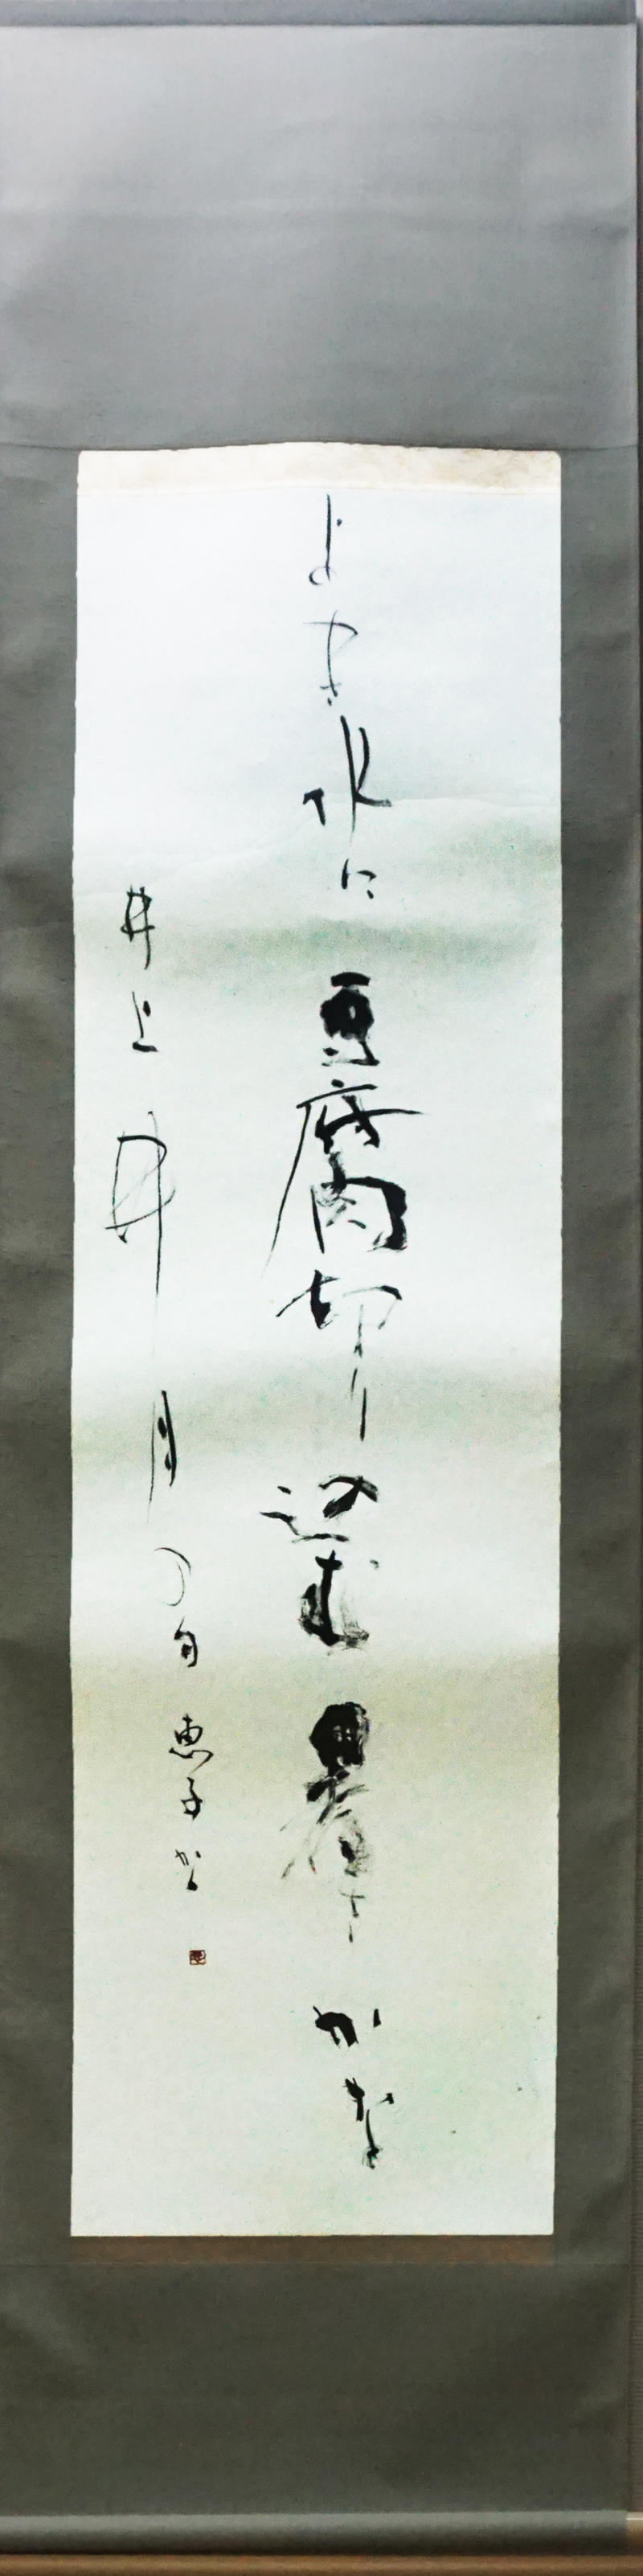 よき水に豆腐切り込む暑さかな
井上井月の句 恵子かく